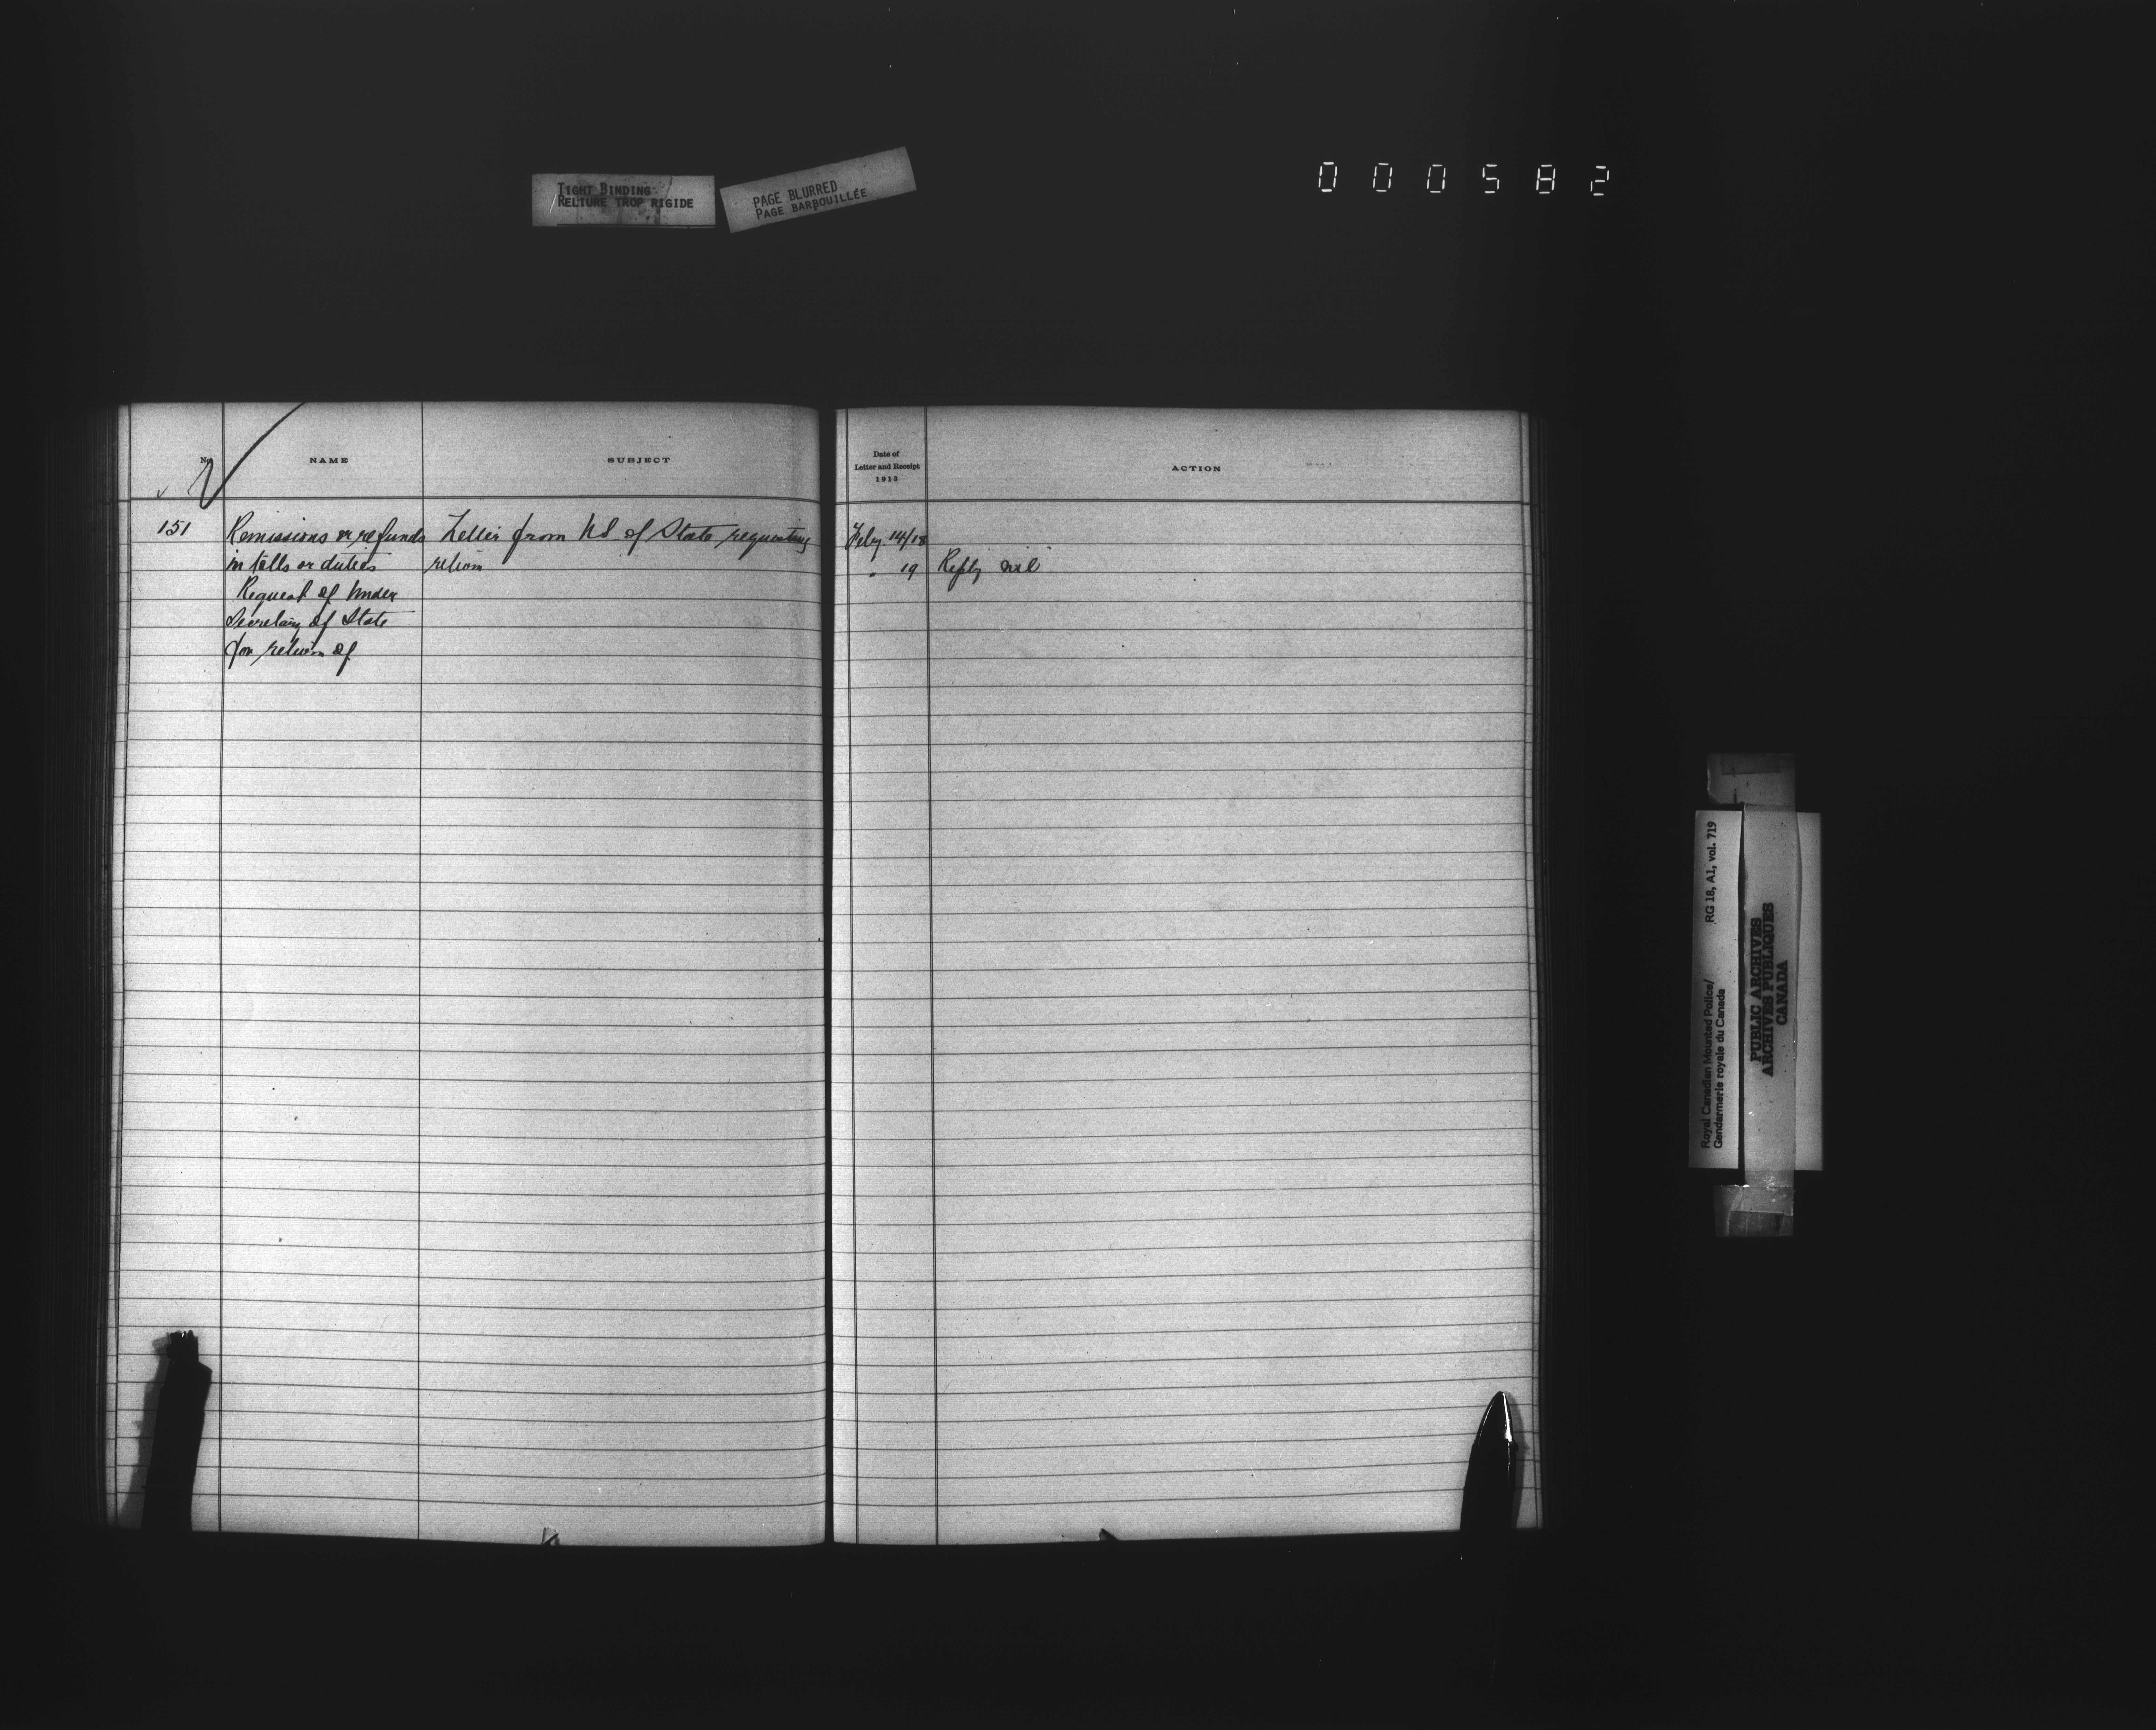 TIGHT BINDING
RELIURE TROP RIGIDE
PAGE BLURRED
PAGE BARBOUILLÉE
000582
No.
NAME
SUBJECT
Date of
Letter and Receipt
1913
ACTION
151
Remissions or refunds
in tolls or duties
Request of Under
Secretary of State
for return of
Letter from US of State requesting
return
Feby. 14/18
" 19
Reply nil
Royal Canadian Mounted Police/
Gendarmerie royale du Canada
RG 18, A1, vol. 719
PUBLIC ARCHIVES
ARCHIVES PUBLIQUES
CANADA